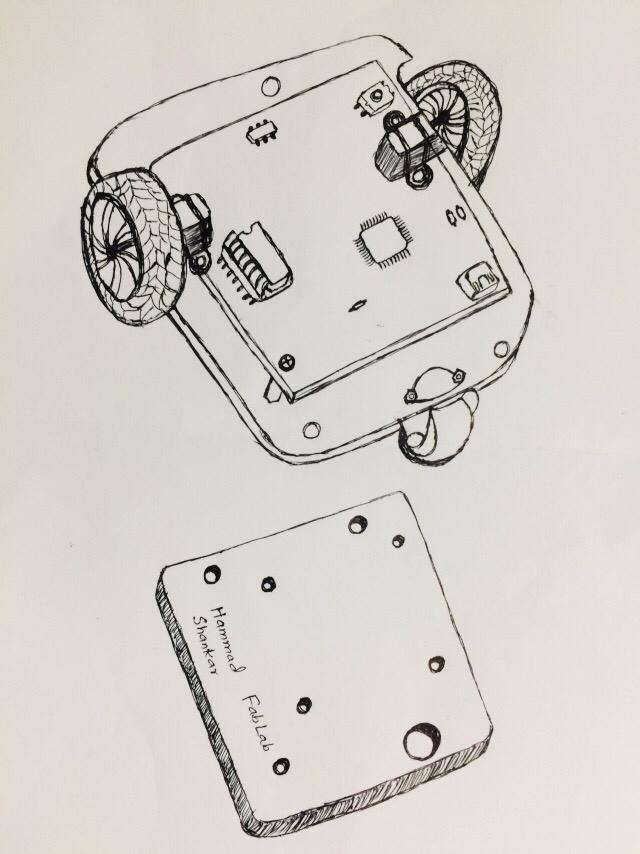 Hammad
Shankar
FabLab